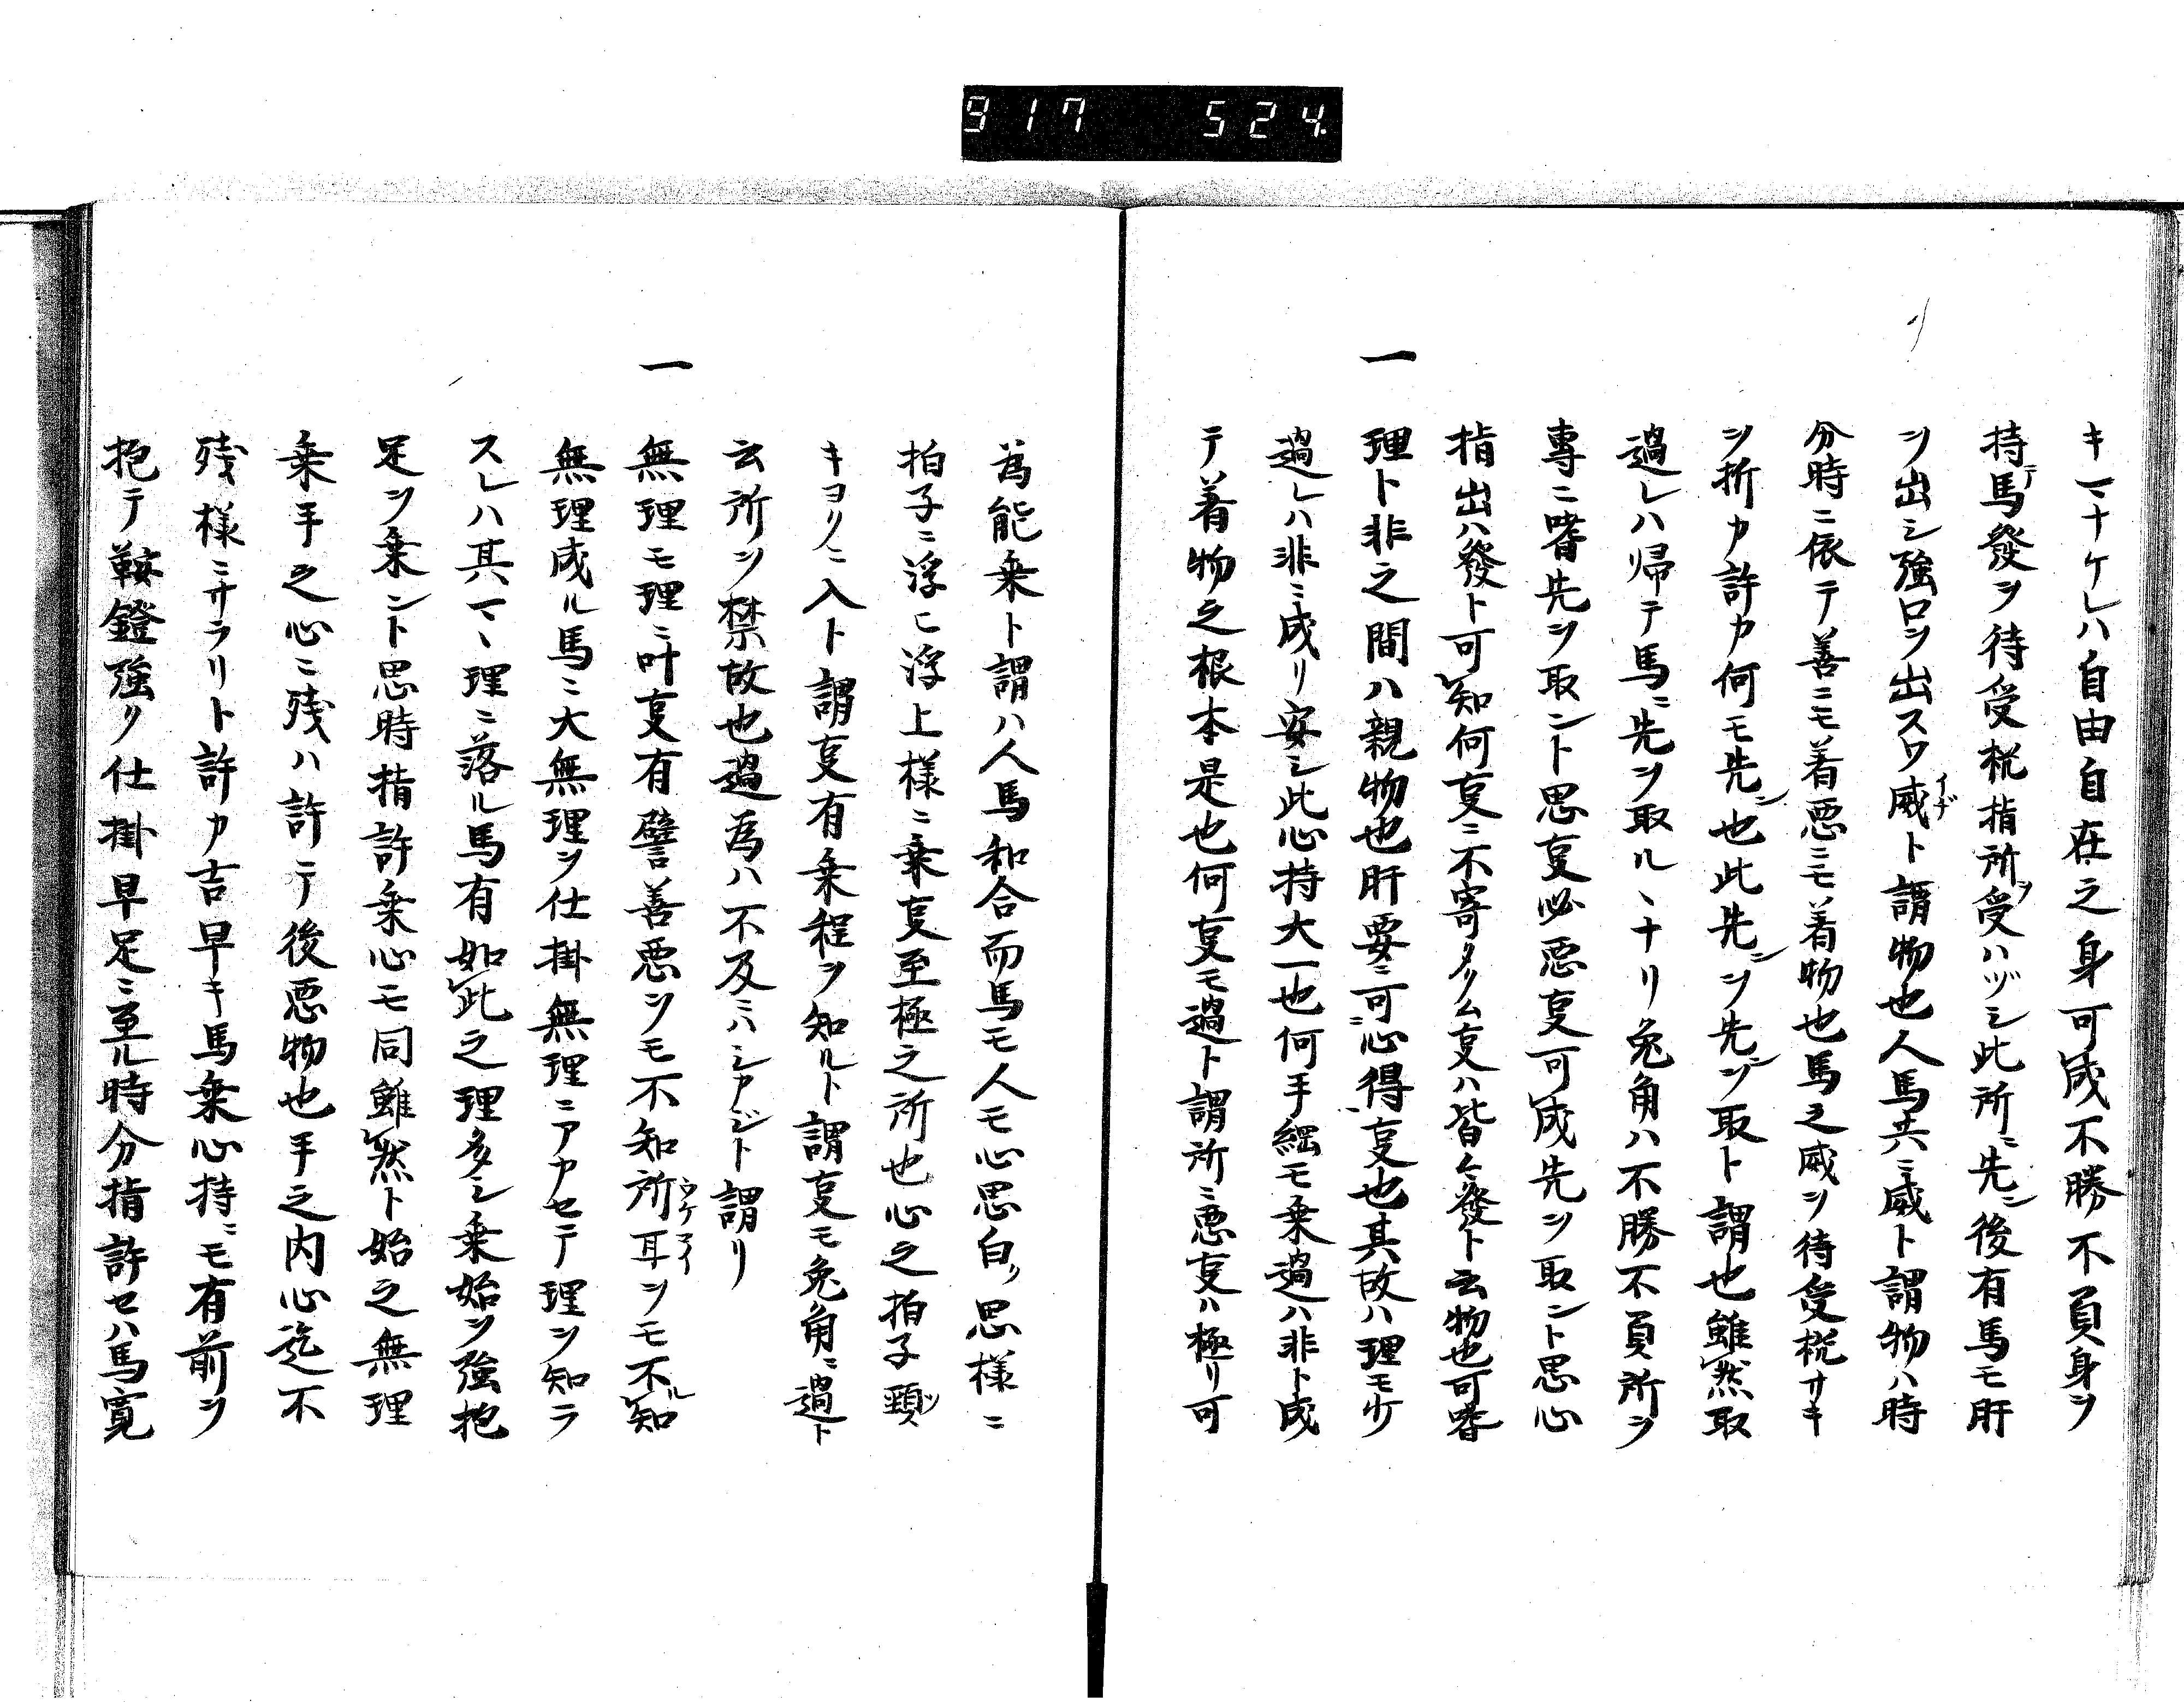 917 524
キマヽナケレハ自由自在之身可成不勝不負身ヲ
持テ馬發ヲ待受梲指所ヲ受ハヅシ此所ニ先ン後有馬モ肝
ヲ出シ強口ヲ出スワ威イデト謂物也人馬共ニ威ト謂物ハ時
分時ニ依テ善ニモ着悪ニモ着物也馬之威ヲ待受梲サキ
ヲ折カ許カ何モ先ン也此先ンヲ先ンヲ取ト謂也雖然取
過レハ帰テ馬ニ先ヲ取ルヽナリ兔角ハ不勝不負所ヲ
專ニ嗜先ヲ取ント思叓必悪叓可成先ヲ取ント思心
指出ハ發ト可知何叓ニ不寄タクム叓ハ皆々發ト云物也可嗜
一 理ト非之間ハ親物也肝要ニ可心得叓也其故ハ理モ少
過レハ非ニ成リ安シ此心持大一也何手綱モ乗過ハ非ト成
テ着物之根本是也何叓モ過ト謂所ニ悪叓ハ極リ可
為能乗ト謂ハ人馬和合而馬モ人モ心思白ク思様ニ
拍子ニ浮ヒ浮上様ニ乗叓至極之所也心之拍子頸ツ
キヨクニ入ト謂叓有乗程ヲ知ルト謂叓モ兔角ニ過ト
云所ヲ禁故也過為ハ不及ニハシアジト謂リ
一 無理モ理ニ叶叓有譬善悪ヲモ不知所耳ウケヌイヲモ不ル知
無理成ル馬ニ大無理ヲ仕掛無理ニアカセテ理ヲ知ラ
スレハ其マヽ理ニ落ル馬有如此之理多シ乗始ヲ強抱
足ヲ乗ント思時指許乗心モ同雖然ト始之無理
乗手之心ニ残ハ許テ後悪物也手之内心迄不
残様ニサラリト許カ吉早キ馬乗心持ニモ有前ヲ
抱テ鞍鐙強ク仕掛早足ニ至ル時分指許セハ馬寛